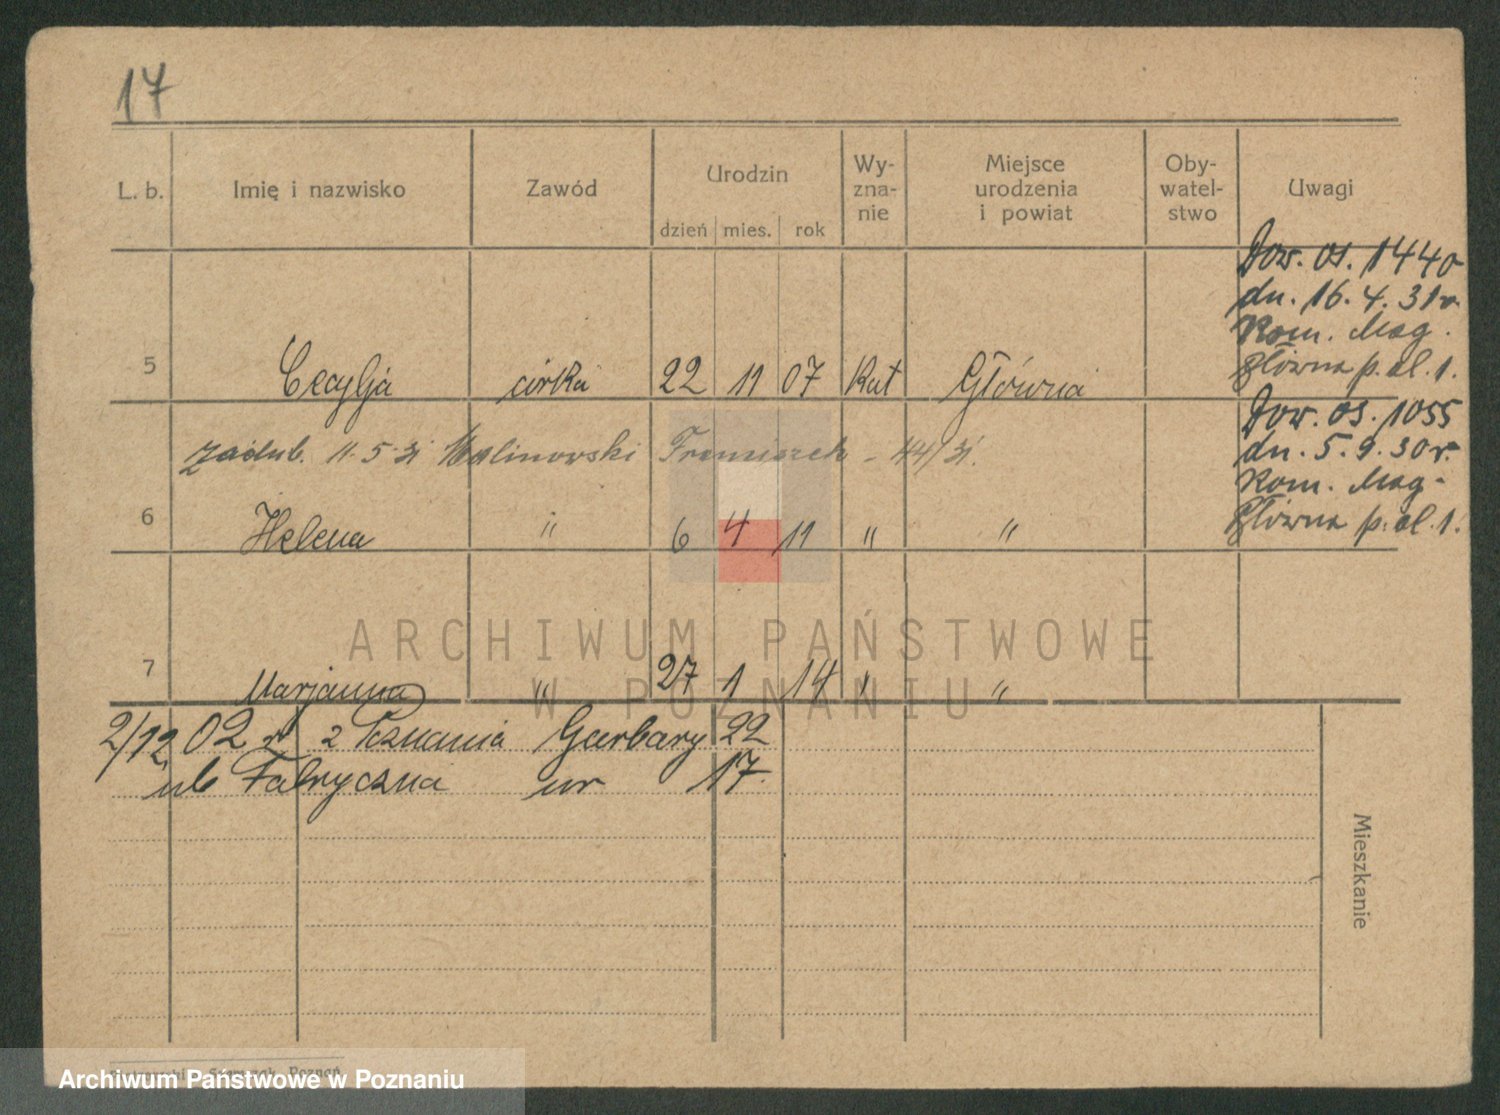 17
L. b. Imię i nazwisko Zawód Urodzin dzień mies. rok Wy-zna-nie Miejsce urodzenia i powiat Oby-watel-stwo Uwagi
Dow. os. 1440
dn. 16. 4. 31 r.
Kom. Mag.
Główna p. al. 1.
5 Cecylja córka 22 11 07 Kat Główna
Dow. os. 1055
dn. 5. 9. 30 r.
Kom. Mag.
Główna p. al. 1.
zaślub. 11. 5. 31 Malinowski Franciszek - 144/31.
6 Helena " 6 4 11 " "
7 Marjanna " 27 1 14 " "
ARCHIWUM PAŃSTWOWE
W POZNANIU
2/12. 02 z Poznania Garbary 22
ul Fabryczna nr 17.
Mieszkanie
Poznań
Archiwum Państwowe w Poznaniu